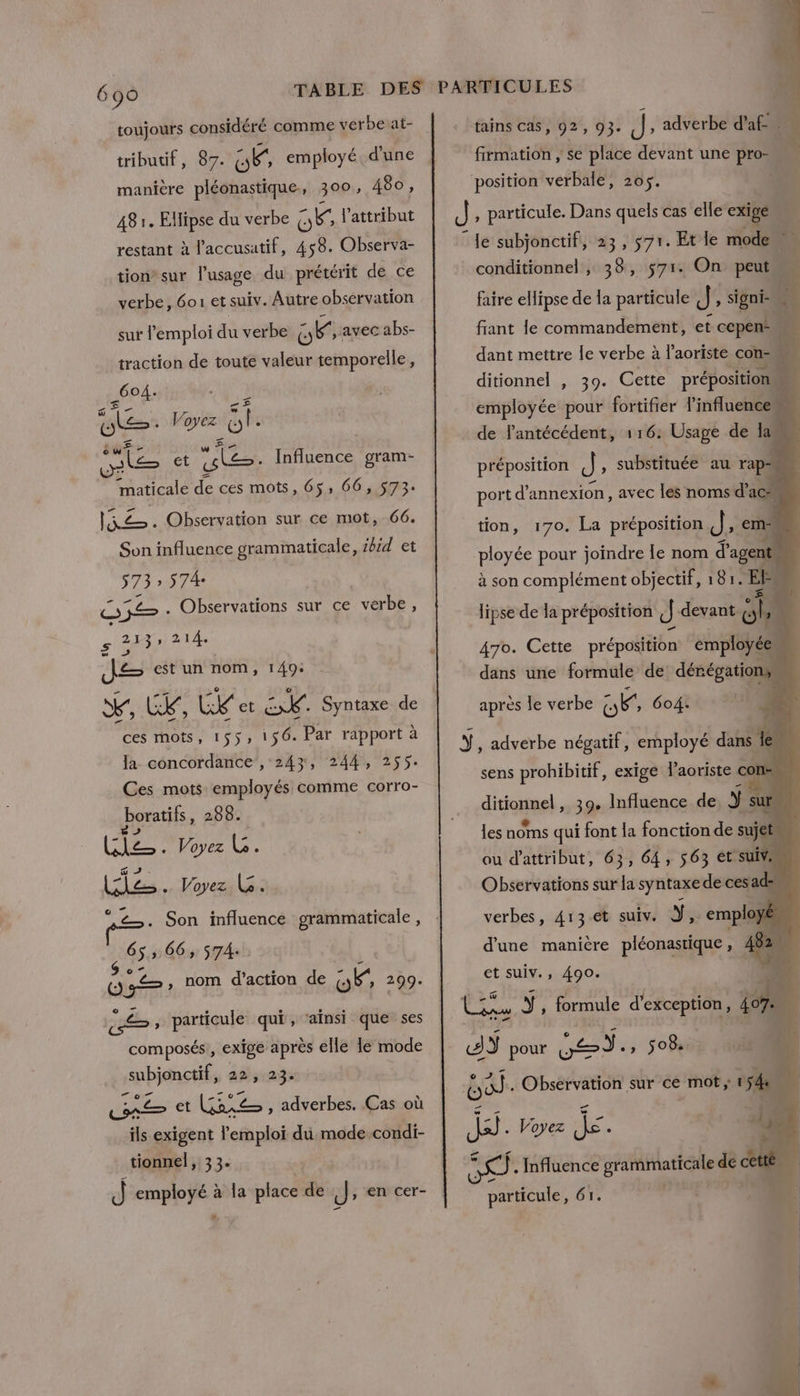 690 TABLE DES PARTICULES
toujours considéré comme verbe at-
tributif, 87. كَانَ, employé d'une
manière pléonastique, 300, 480,
481. Ellipse du verbe كَانَ, l'attribut
restant à l'accusatif, 458. Observa-
tion sur l'usage du prétérit de ce
verbe, 601 et suiv. Autre observation
sur l'emploi du verbe كَانَ, avec abs-
traction de toute valeur temporelle,
604.
كَأَنَّ. Voyez أَنَّ.
كَأَيِّنْ et كَأَيٍّ. Influence gram-
maticale de ces mots, 65, 66, 573.
كَذَا. Observation sur ce mot, 66.
Son influence grammaticale, ibid et
573, 574.
كَرَبَ. Observations sur ce verbe,
213, 214.
كُلٌّ est un nom, 149.
كِلَا, كِلْتَا et Syntaxe de
ces mots, 155, 156. Par rapport à
la concordance, 243, 244, 255.
Ces mots employés comme corro-
boratifs, 288.
كُلَّمَا. Voyez مَا.
كُلَّمَا. Voyez مَا.
كَمْ. Son influence grammaticale,
65, 66, 574.
كَوْنٌ, nom d'action de كَانَ, 299.
كَيْ, particule qui, ainsi que ses
composés, exige après elle le mode
subjonctif, 22, 23.
كَيْفَ et كَيْفَمَا, adverbes. Cas où
ils exigent l'emploi du mode condi-
tionnel, 33.
لَ employé à la place de لِ, en cer-
tains cas, 92, 93. لَ, adverbe d'af-
firmation, se place devant une pro-
position verbale, 205.
لِ, particule. Dans quels cas elle exige
le subjonctif, 23, 571. Et le mode
conditionnel, 38, 571. On peut
faire ellipse de la particule لِ, signi-
fiant le commandement, et cepen-
dant mettre le verbe à l'aoriste con-
ditionnel, 39. Cette préposition
employée pour fortifier l'influence
de l'antécédent, 116. Usage de la
préposition لِ, substituée au rap-
port d'annexion, avec les noms d'ac-
tion, 170. La préposition لِ, em-
ployée pour joindre le nom d'agent
à son complément objectif, 181. El-
lipse de la préposition لِ devant أَنْ,
470. Cette préposition employée
dans une formule de dénégation,
après le verbe كَانَ, 604.
لَا, adverbe négatif, employé dans le
sens prohibitif, exige l'aoriste con-
ditionnel, 39. Influence de لَا sur
les noms qui font la fonction de sujet
ou d'attribut, 63, 64, 563 et suiv.
Observations sur la syntaxe de ces ad-
verbes, 413 et suiv. لَا, employé
d'une manière pléonastique, 482
et suiv., 490.
لَا سِيَّمَا, formule d'exception, 407.
لَاكِ pour لَاكِنْ., 508.
لَدُنْ. Observation sur ce mot, 154.
لَعَلَّ. Voyez عَلَّ.
لَكِنَّ. Influence grammaticale de cette
particule, 61.